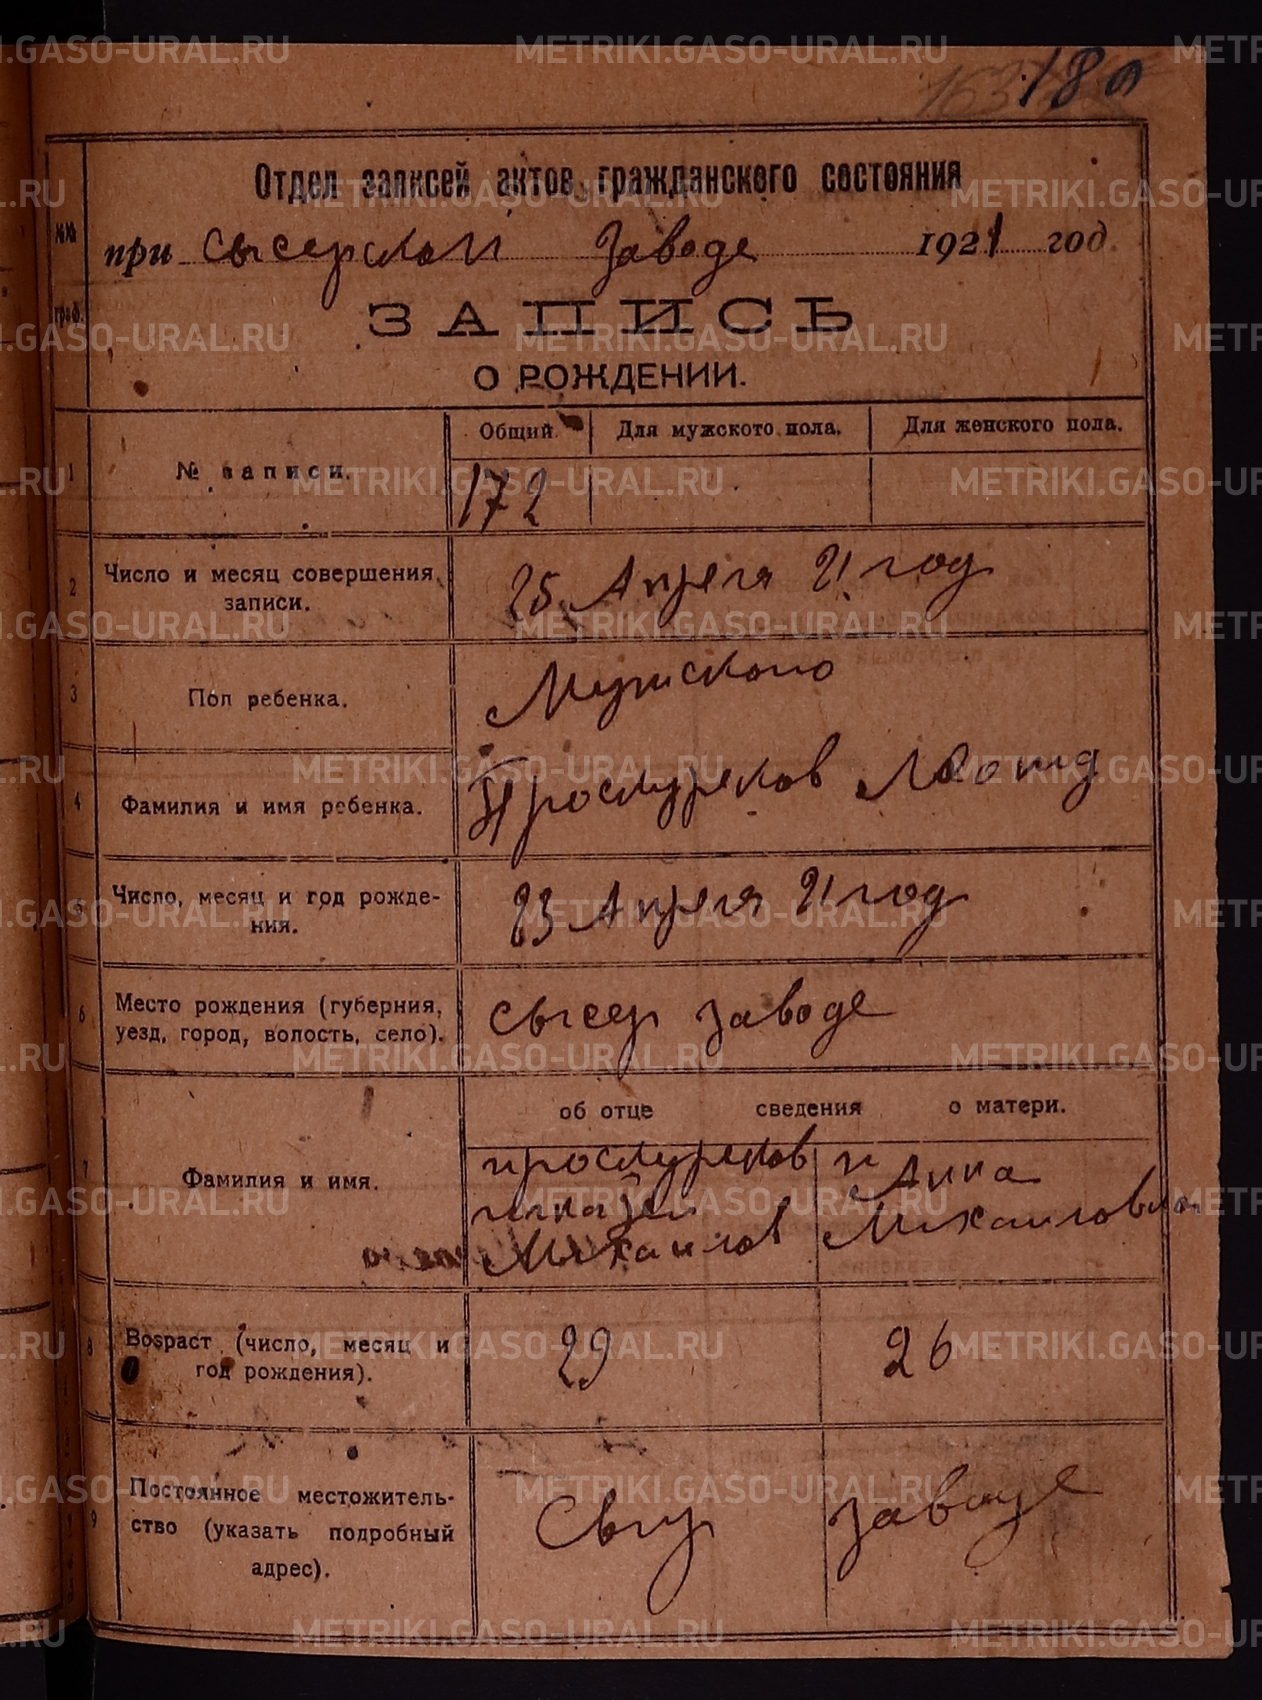 180
Отдел записей актов гражданского состояния
№№ граф.
при Сысерском Заводе 1921 год
ЗАПИСЬ
О РОЖДЕНИИ.
1
№ записи.
Общий
Для мужского пола.
Для женского пола.
172
2
Число и месяц совершения записи.
25 Апреля 21 год
3
Пол ребенка.
Мужского
4
Фамилия и имя ребенка.
Проскуряков Леонид
5
Число, месяц и год рожде-
ния.
23 Апреля 21 год
6
Место рождения (губерния,
уезд, город, волость, село).
Сысер Заводе
об отце сведения о матери.
7
Фамилия и имя.
проскуряков
Михаилов
Анна
Михаиловна
8
Возраст (число, месяц и
год рождения).
29
26
9
Постоянное местожитель-
ство (указать подробный
адрес).
Заводе
METRIKI.GASO-URAL.RU